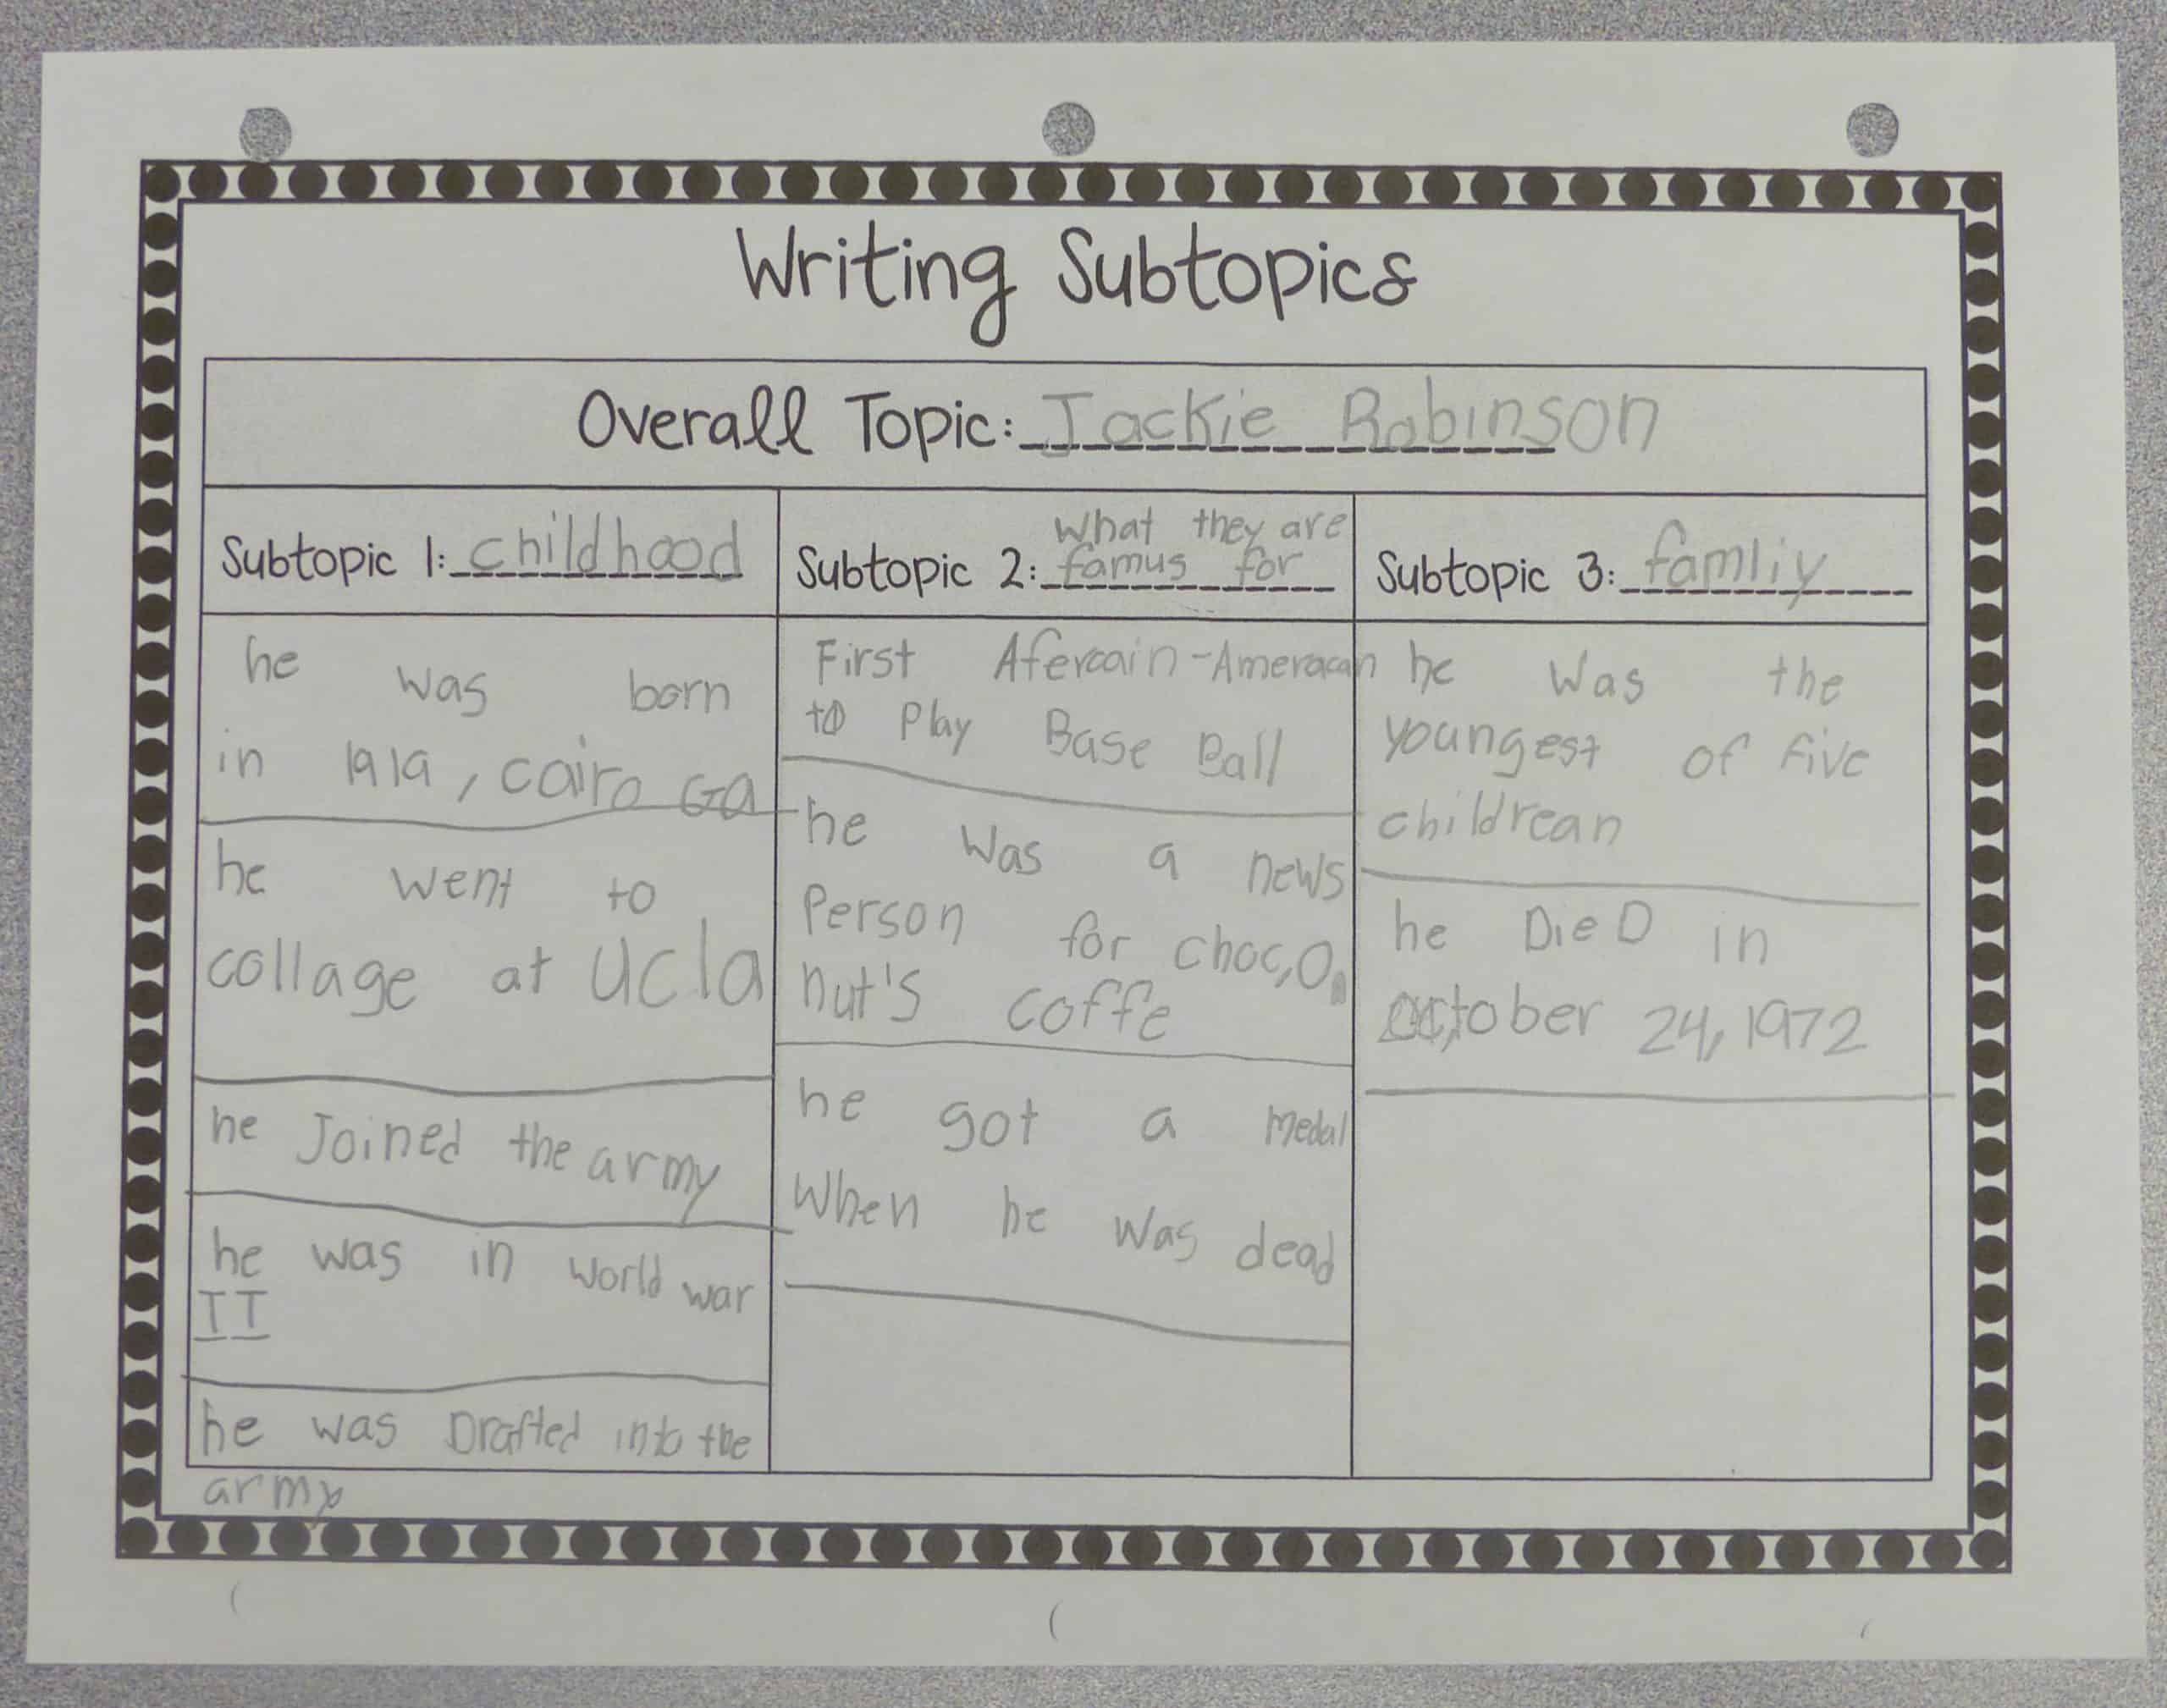 Writing Subtopics
Overall Topic: Jackie Robinson
Subtopic 1: childhood
he was born
in 1919, cairo GA
he went to
collage at ucla
he Joined the army
he was in world war
II
he was Drafted into the
army
What they are
Subtopic 2: famus for
First Afercain-Ameracan
to Play Base Ball
he was a news
Person for choc,O,
nut's coffe
he got a medal
When he was dead
Subtopic 3: famliy
he was the
youngest of five
childrean
he DieD in
october 24, 1972